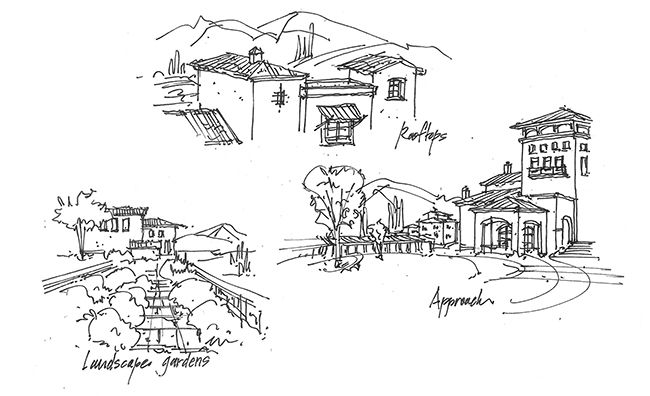 Rooftops
Approach
Landscape gardens